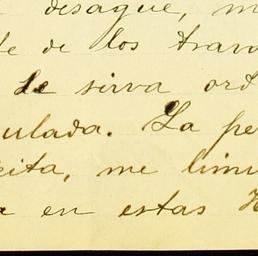 desague, m
te de los trava
se sirva ord
ulada. La pe
cita, me limi
a en estas H